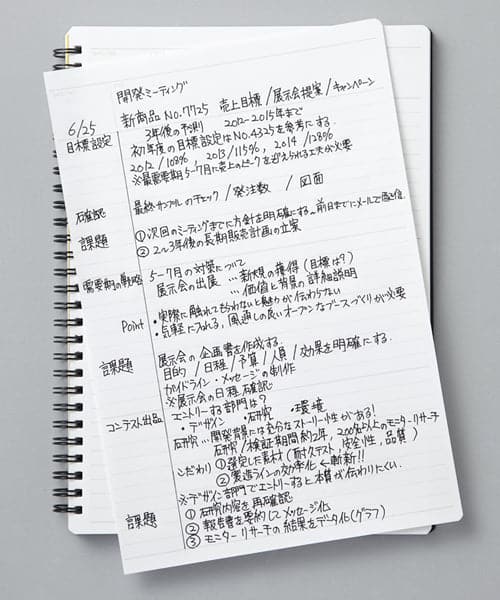 開発ミーティング
新商品 No.7725 売上目標/展示会提案/キャンペーン
6/25 3年後の予測 2012-2015年まで
目標設定 初年度の目標設定はNo.4325を参考にする。
2012/108%, 2013/115%, 2014/128%
※最需要期5-7月に売上のピークを迎えられる工夫が必要
確認 最終サンプルのチェック/発注数 /図面
課題 ①次回のミーティングまでに方針を明確にする。前日までにメールで配信
②2~3年後の長期販売計画の立案
需要期の戦略 5-7月の対策について
展示会の出展 …新規の獲得(目標は?)
…価値と背景の詳細説明
Point ・実際に触れてもらわないと魅力が伝わらない
・気軽に入れる、風通しの良いオープンなブースづくりが必要
課題 展示会の企画書を作成する。
目的/日程/予算/人員/効果を明確にする。
ガイドライン・メッセージの制作
※展示会の日程確認
コンテスト出品 エントリーする部門は?
・デザイン ・研究 ・環境
研究…開発背景には充分なストーリー性がある!
研究/検証期間約2年、200名以上のモニターリサーチ
こだわり ①選定した素材(耐久テスト、安全性、品質)
②製造ラインの効率化←斬新!!
※デザイン部門でエントリーすると本質が伝わりにくい。
課題 ①研究内容を再確認
②報告書を要約してメッセージ化
③モニターリサーチの結果をデータ化(グラフ)